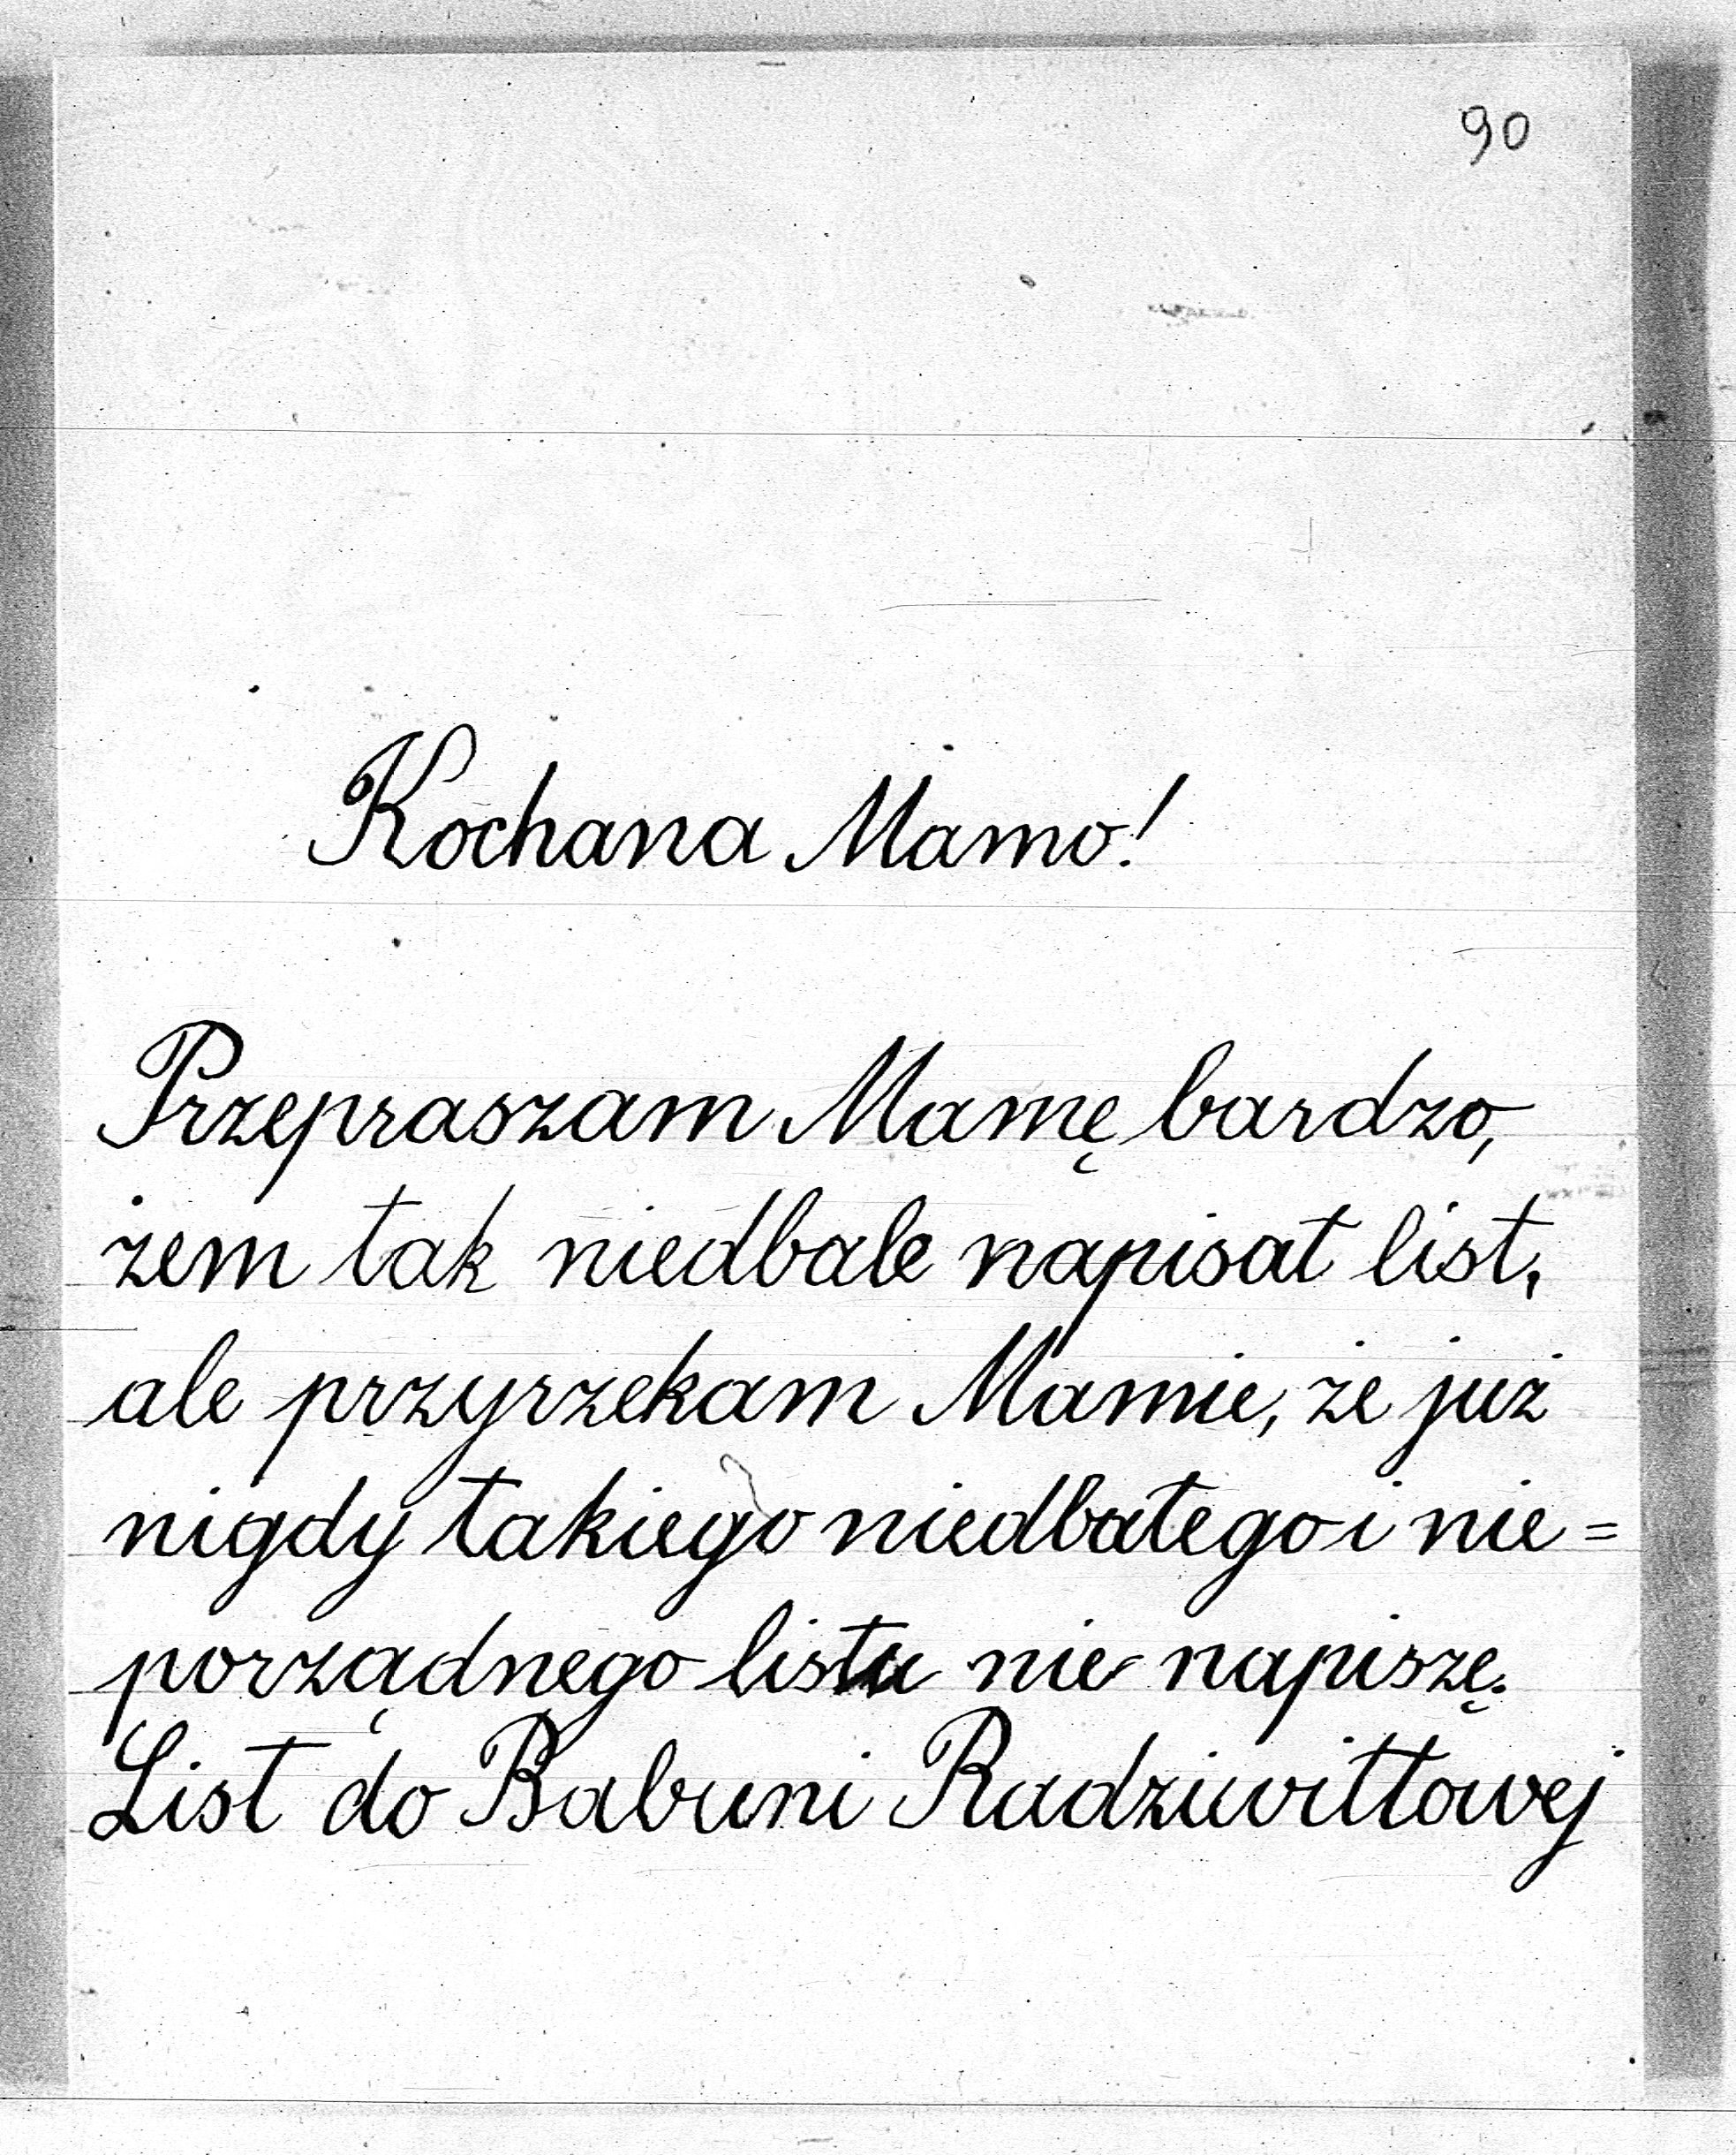 90
Kochana Mamo!
Przepraszam Mamę bardzo,
żem tak niedbale napisał list,
ale przyrzekam Mamie, że już
nigdy takiego niedbałego i nie=
porządnego listu nie napiszę.
List do Babuni Radziwiłłowej